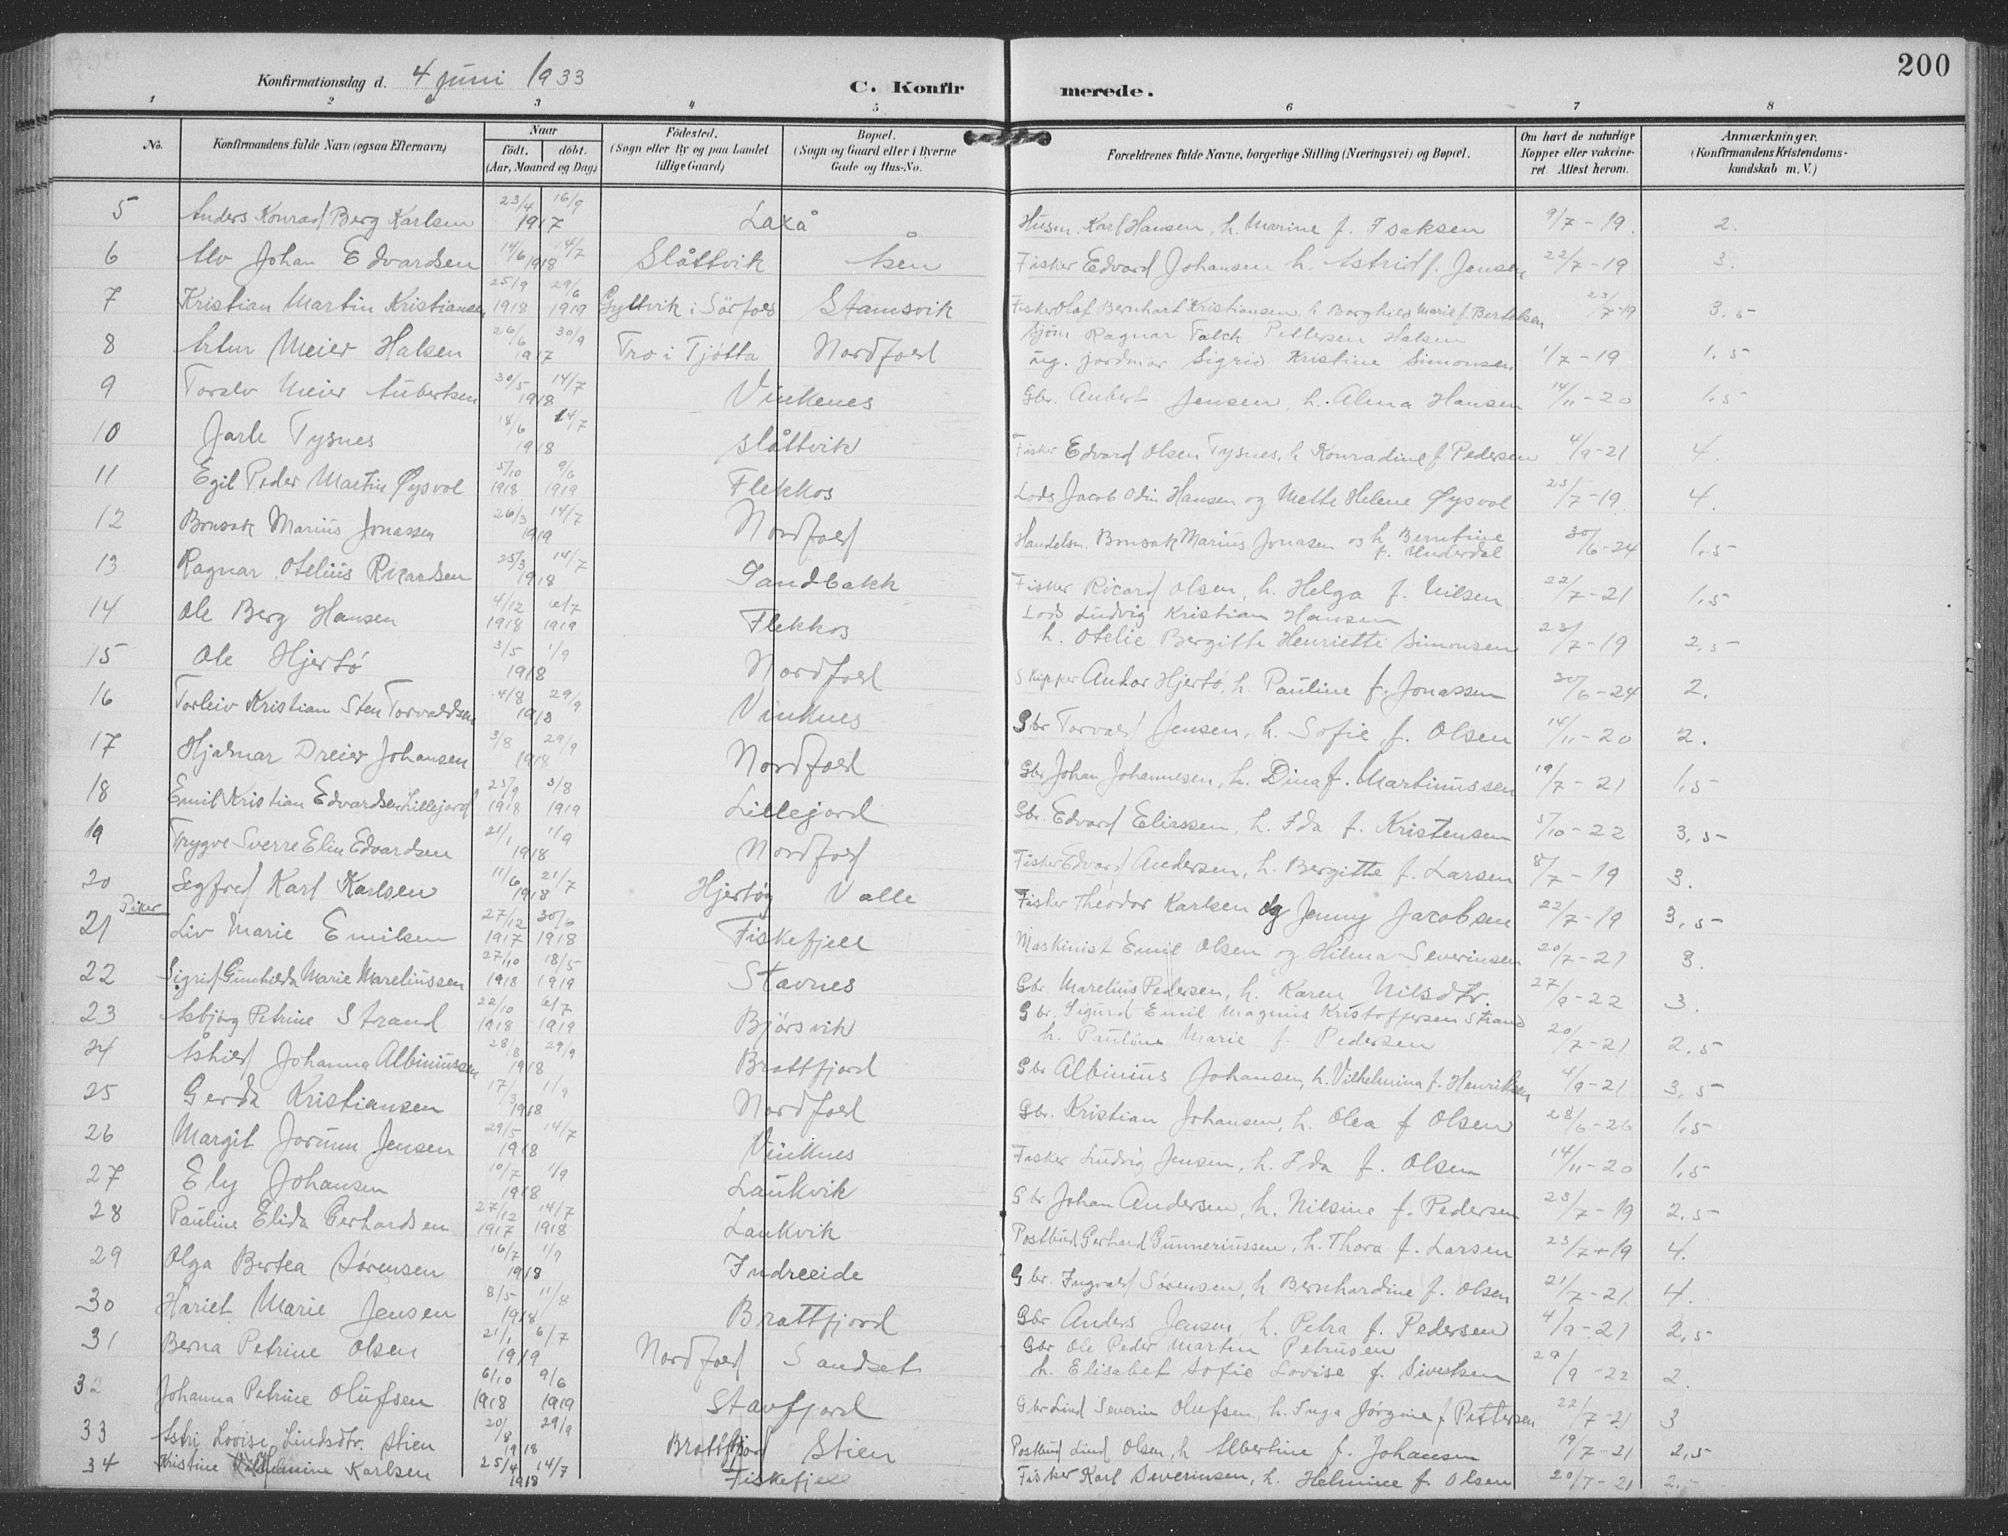 200
Konfirmationsdag d. 4 juni 1933
C. Konfirmerede.
1 2 3 4 5 6 7 8
No.
Konfirmandens fulde Navn (ogsaa Efternavn)
Naar
født. døbt.
(Aar, Maaned og Dag)
Fødested.
(Sogn eller By og paa Landet tillige Gaard)
Bopæl.
(Sogn og Gaard eller i Byerne Gade og Hus-No.
Forældrenes fulde Navne, borgerlige Stilling (Næringsvei) og Bopæl.
Om havt de naturlige Kopper eller vakcineret. Attest herom.
Anmærkninger.
(Konfirmandens Kristendomskundskab m. V.)
5 Anders Konrad Berg Karlsen 23/4 16/9 1917 Laxå Husm. Karl Hansen, h. Marine f. Isaksen 9/7-19. 2.
6 Alv Johan Edvardsen 14/6 14/7 1918 Slåttvik Åsen Fisker Edvard Johansen h. Astrid f. Jensen 22/7-19 3.
7 Kristian Martin Kristiansen 25/9 1918 29/6 1919 Gyltvik i Sörfold Stamsvik Fisker Olaf Bernhart Kristiansen h Borghild Marie f. Bertelsen 23/7-19 3,5
8 Artur Meier Halsen 26/6 30/9 1917 Tro i Tjötta Nordfold Sjöm Ragnar Falck Pettersen Halsen
ug. jordmor Sigrid Kristine Simonsen 1/7-19 1,5
9 Torslv Meier Aubertsen 30/5 14/7 1918 Vinkenes Gbr. Aubert Jensen, h. Alma Hansen 14/11-20 1,5
10 Jarle Tysnes 18/6 14/7 1918 Slåttvik Fisker Edvard Olsen Tysnes, h Konradine f. Pedersen 4/9-21 4.
11 Egil Peder Martin Øysvol 5/10 1918 9/6 1919 Flekkos Lods Jacob Odin Hansen og Mette Helene Øysvol 23/7-19. 4.
12 Bonsak Marius Jonassen 26/3 14/7 1919 Nordfold Handelsm. Bonsak Marius Jonasen og h Berntine f. Underdal 30/6-24 1,5
13 Ragnar Otelius Rikardsen 25/3 14/7 1918 Sandbakk Fisker Ricard Olsen, h. Helga f. Nilsen 22/7-21 1,5
14 Ole Berg Hansen 4/12 1918 6/7 1919 Flekkos Lods Ludvig Kristian Hansen
h. Otelie Bergitte Henriette Simonsen 23/7-19 2,5
15 Ole Hjertö 3/5 1/9 1918 Nordfold Skipper Ankor Hjertö, h. Pauline f. Jonassen 30/6-24 2.
16 Torleiv Kristian Sten Torvaldsen 4/8 29/9 1918 Vinknes Gbr Torvald Jensen, h. Sofie f. Olsen 14/11-20 2.
17 Hjalmar Dreier Johansen 3/8 29/9 1918 Nordfold Gbr Johan Johannesen, h. Dina f. Martinussen 19/7-21 1,5
18 Emil Kristian Edvardsen Lillejord 25/9 1918 3/8 1919 Lillejord Gbr. Edvard Eliassen, h. Ida f. Kristensen 5/10-22 3,5
19 Trygve Sverre Elin Edvardsen 21/1 1/9 1918 Nordfold Fisker Edvard Andersen, h. Bergitte f. Larsen 8/7-19 3.
20 Sigfred Karl Karlsen 11/6 21/7 1918 Hjertøy Valle Fisker Theodor Karlsen og Jenny Jacobsen 22/7-19 3,5
Piker
21 Liv Marie Emilsen 27/12 1917 30/6 1918 Fiskefjell Maskinist Emil Olsen og Hilma Severinsen 20/7-21 3.
22 Sigrid Gunhilda Marie Mareliussen 27/10 1918 18/5 1919 Stavnes Gbr. Marelius Pedersen, h. Karen Nilsdtr. 27/9-22 3.
23 Asbjörg Petrine Strand 22/10 1918 6/7 1919 Björsvik Gbr. Sigurd Emil Magnus Kristoffersen Strand
h. Pauline Marie f. Pedersen 20/7-21 2,5
24 Åshild Johanna Albiniussen 28/8 29/9 1918 Brattfjord Gbr Albinius Johansen, h. Vilhelmina f. Henriksen 4/9-21 3,5
25 Gerda Kristiansen 17/3 1/9 1918 Nordfold Gbr. Kristian Johansen, h. Olea f Olsen 28/6-26 1,5
26 Margit Jorunn Jensen 29/5 14/7 1918 Vinknes Fisker Ludvig Jensen, h. Ida f. Olsen 14/11-20 1,5
27 Ely Johansen 10/7 1/9 1918 Laukvik Gbr. Johan Andersen, h. Nilsine f. Pedersen 23/7-19 2,5
28 Pauline Elida Gerhardsen 27/12 1917 14/7 1918 Laukvik Postbud Gerhard Gunneriussen, h. Thora f. Larsen 23/7-19 4.
29 Olga Bertea Sörensen 16/7 1/9 1918 Indreeide Gbr. Ingvald Sörensen, h Bernhardine f. Olsen 21/7-21. 4.
30 Hariet Marie Jensen 8/5 11/8 1918 Brattfjord Gbr. Anders Jensen h. Petra f. Pedersen 4/9-21 2,5
31 Berna Petrine Olsen 21/1 6/7 1919 Nordfold Sandset Gbr Ole Peder Martin Petrusen
h. Elisabet Sofie Lovise f. Sivertsen 29/9-22 2.
32 Johanna Petrine Olufsen 6/10 1918 9/6 1919 Stavfjord Gbr Lind Severin Olufsen, h. Inga Jörgine f Pettersen 22/7-21 3
33 Astri Lovise Lindsdtr. Stien 20/8 29/9 1918 Brattfjord Stien Postbud Lind Olsen, h Albertine f. Johansen 19/7-21 2,5
34 Kristine Vilhelmine Karlsen 25/4 14/7 1918 Fiskefjell Fisker Karl Severinsen, h. Helmine f Olsen 20/7-21 2,5